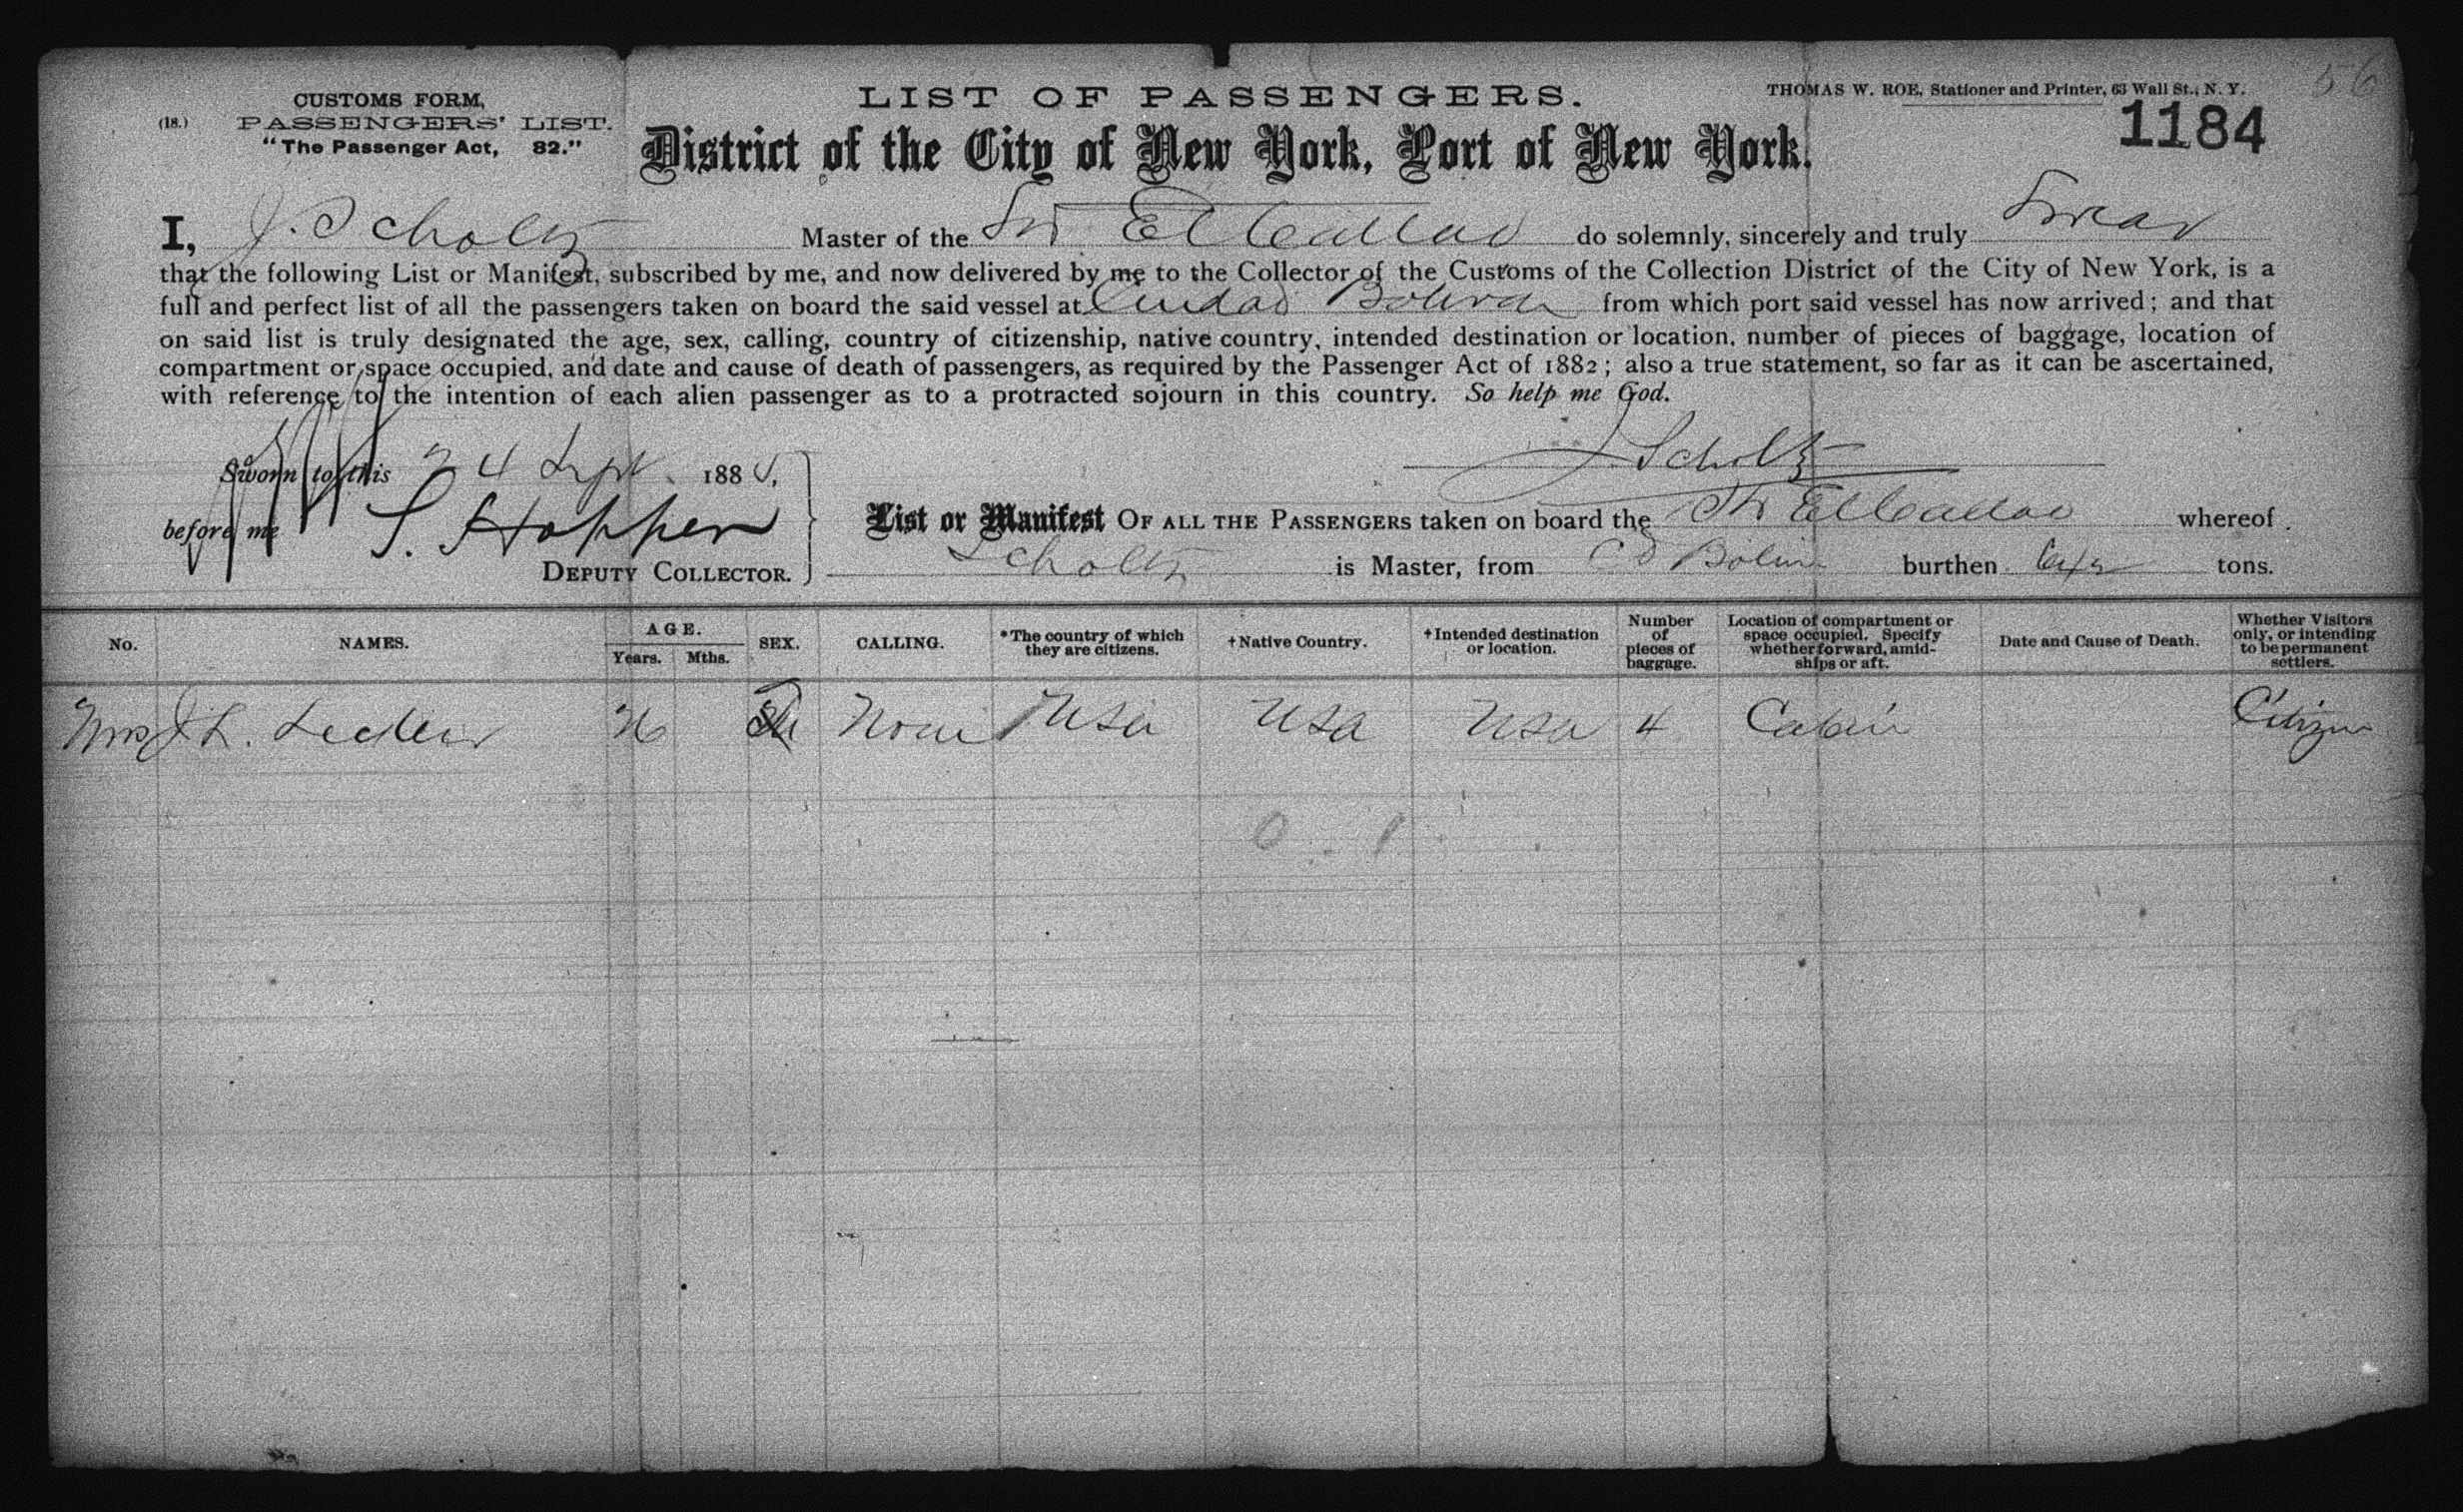 56
CUSTOMS FORM,
(18.) PASSENGERS' LIST.
"The Passenger Act, 82."
LIST OF PASSENGERS.
THOMAS W. ROE, Stationer and Printer, 63 Wall St., N. Y.
1184
District of the City of New York, Port of New York.
I, J. Scholtz Master of the Str El Callao do solemnly, sincerely and truly Swear
that the following List or Manifest, subscribed by me, and now delivered by me to the Collector of the Customs of the Collection District of the City of New York, is a
full and perfect list of all the passengers taken on board the said vessel at Ciudad Bolivar from which port said vessel has now arrived; and that
on said list is truly designated the age, sex, calling, country of citizenship, native country, intended destination or location, number of pieces of baggage, location of
compartment or space occupied, and date and cause of death of passengers, as required by the Passenger Act of 1882; also a true statement, so far as it can be ascertained,
with reference to the intention of each alien passenger as to a protracted sojourn in this country. So help me God.
Sworn to this 24 Sept 1884,
J. Scholtz
before me S. Hopper
DEPUTY COLLECTOR.
List or Manifest OF ALL THE PASSENGERS taken on board the Str El Callao whereof
Scholtz is Master, from CD Boliv burthen tons.
No. NAMES. AGE. Years. Mths. SEX. CALLING. *The country of which they are citizens. †Native Country. †Intended destination or location. Number of pieces of baggage. Location of compartment or space occupied. Specify whether forward, amidships or aft. Date and Cause of Death. Whether Visitors only, or intending to be permanent settlers.
Mrs J L. 26 None USA USA USA 4 Cabin Citizen